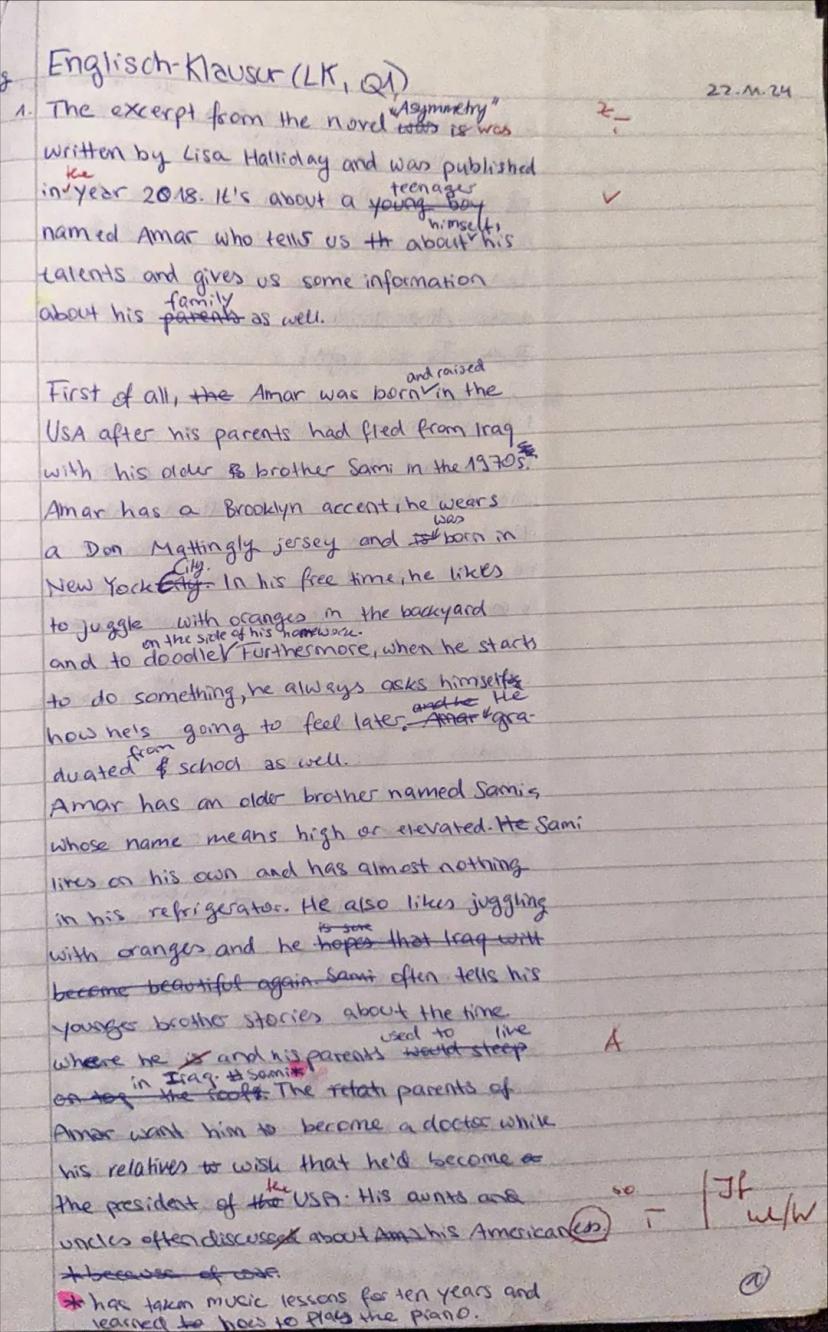 Englisch-Klausur (LK, Q1)
22.11.24
1. The excerpt from the novel "Asymmetry" was is was
written by Lisa Halliday and was published
in the year 2018. It's about a young boy teenager
named Amar who tells us th about himself, his
talents and gives us some information
about his parents family as well.
First of all, the Amar was born and raised in the
USA after his parents had fled from Iraq
with his older brother Sami in the 1970s.
Amar has a Brooklyn accent, he wears
a Don Mattingly jersey and was born in
New York City. City. In his free time, he likes
to juggle with oranges in the backyard
and to doodle on the side of his homework. Furthermore, when he starts
to do something, he always asks himself
how he's going to feel later. and he Amar He gra-
duated from school as well.
Amar has an older brother named Sami,
whose name means high or elevated. He Sami
lives on his own and has almost nothing
in his refrigerator. He also likes juggling
with oranges and he is sure hopes that Iraq will
become beautiful again. Sami often tells his
younger brother stories about the time
where he is and his parents would sleep used to live
on top the roofs. in Iraq. Sami* The relati parents of
Amar want him to become a doctor while
his relatives to wish that he'd become a
the president of the the USA. His aunts and
uncles often discuss about Am his American(es)
so
If
W/W
A
* because of war.
* has taken music lessons for ten years and
learned to how to play the piano.
①